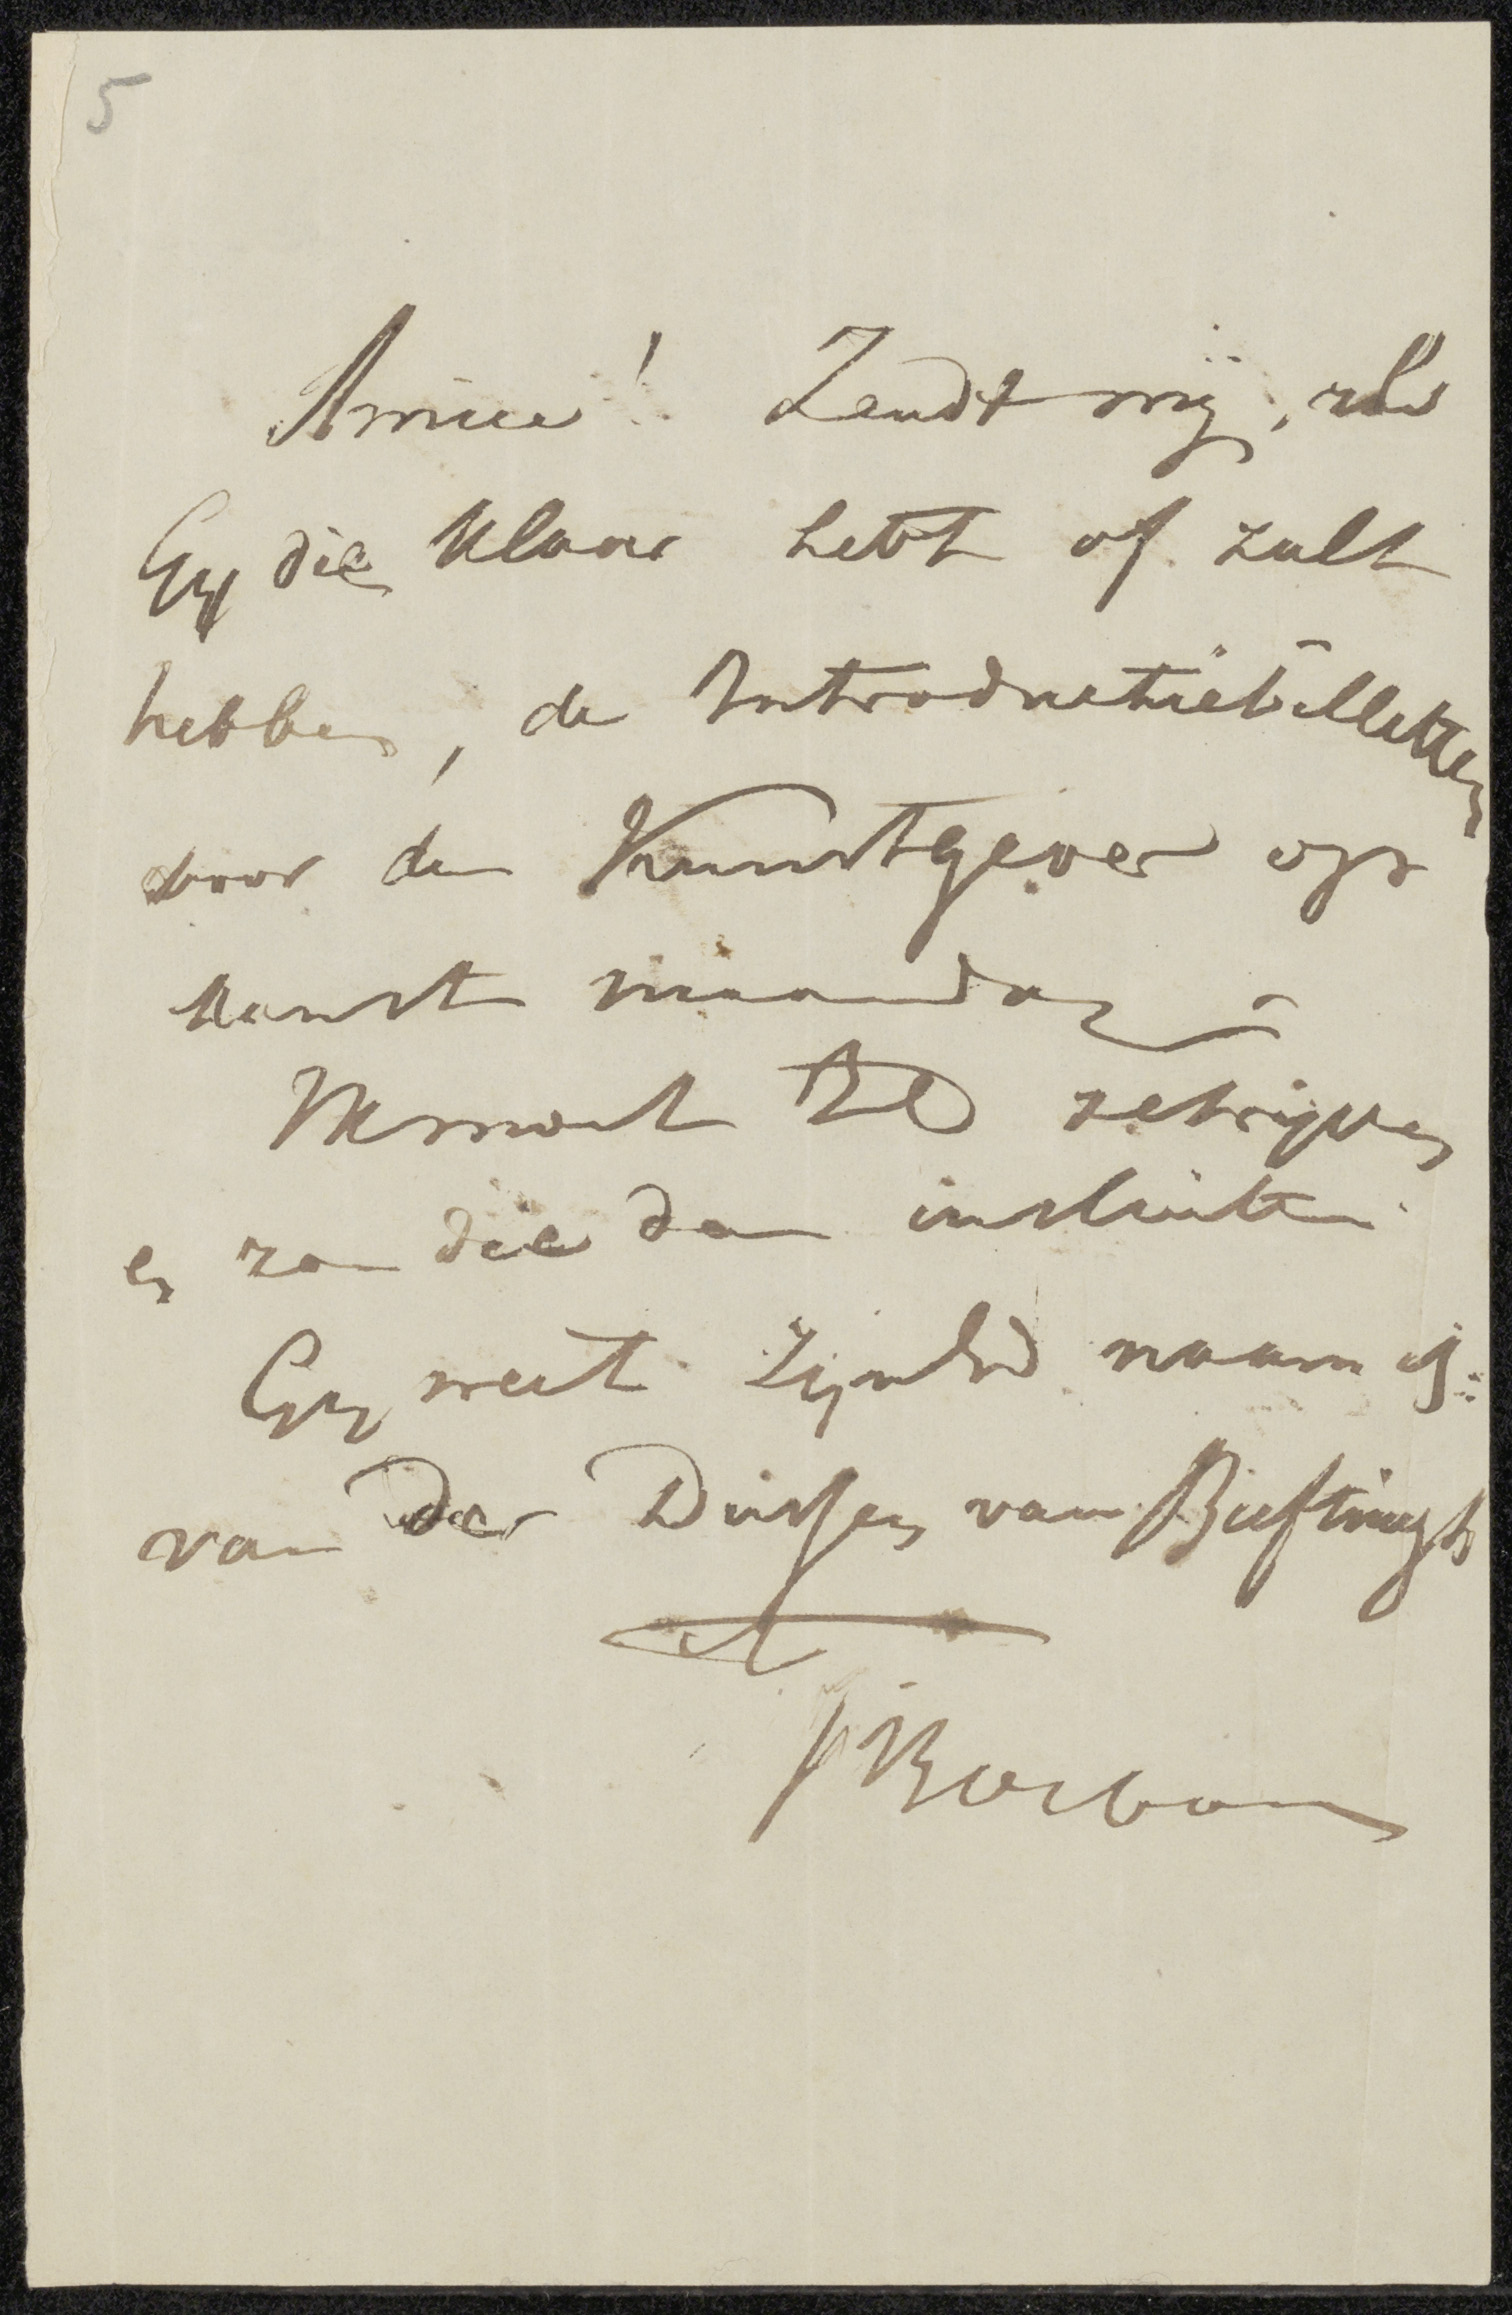 5
Amice! Zendt mij, als
Gij die klaar hebt of zult
hebben, de Introductiebilletten
voor den Kunstgever op
kunst maandag
moet ZEd schrijven
en zou die dan insluiten
Gij weet zijnEd naam is:
van der Dussen van Beeftingh
JBosboom